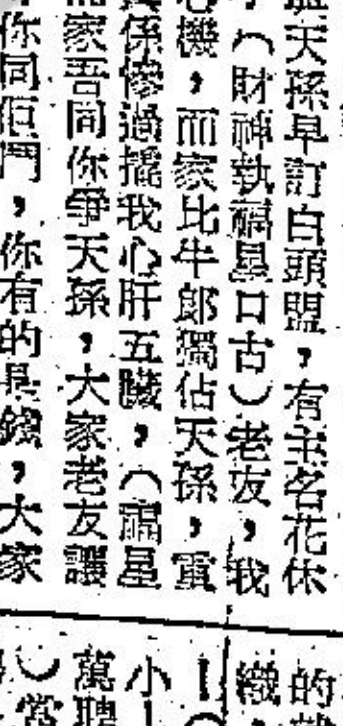 天孫早訂白頭盟，有主名花休
（財神執福星口古）老友，我
心機，而家比牛郎獨佔天孫，重
係慘過搖我心肝五臟，（福星
家吾同你爭天孫，大家老友護
你同佢鬥，你有的是錢，大家
的
織
小
萬聘